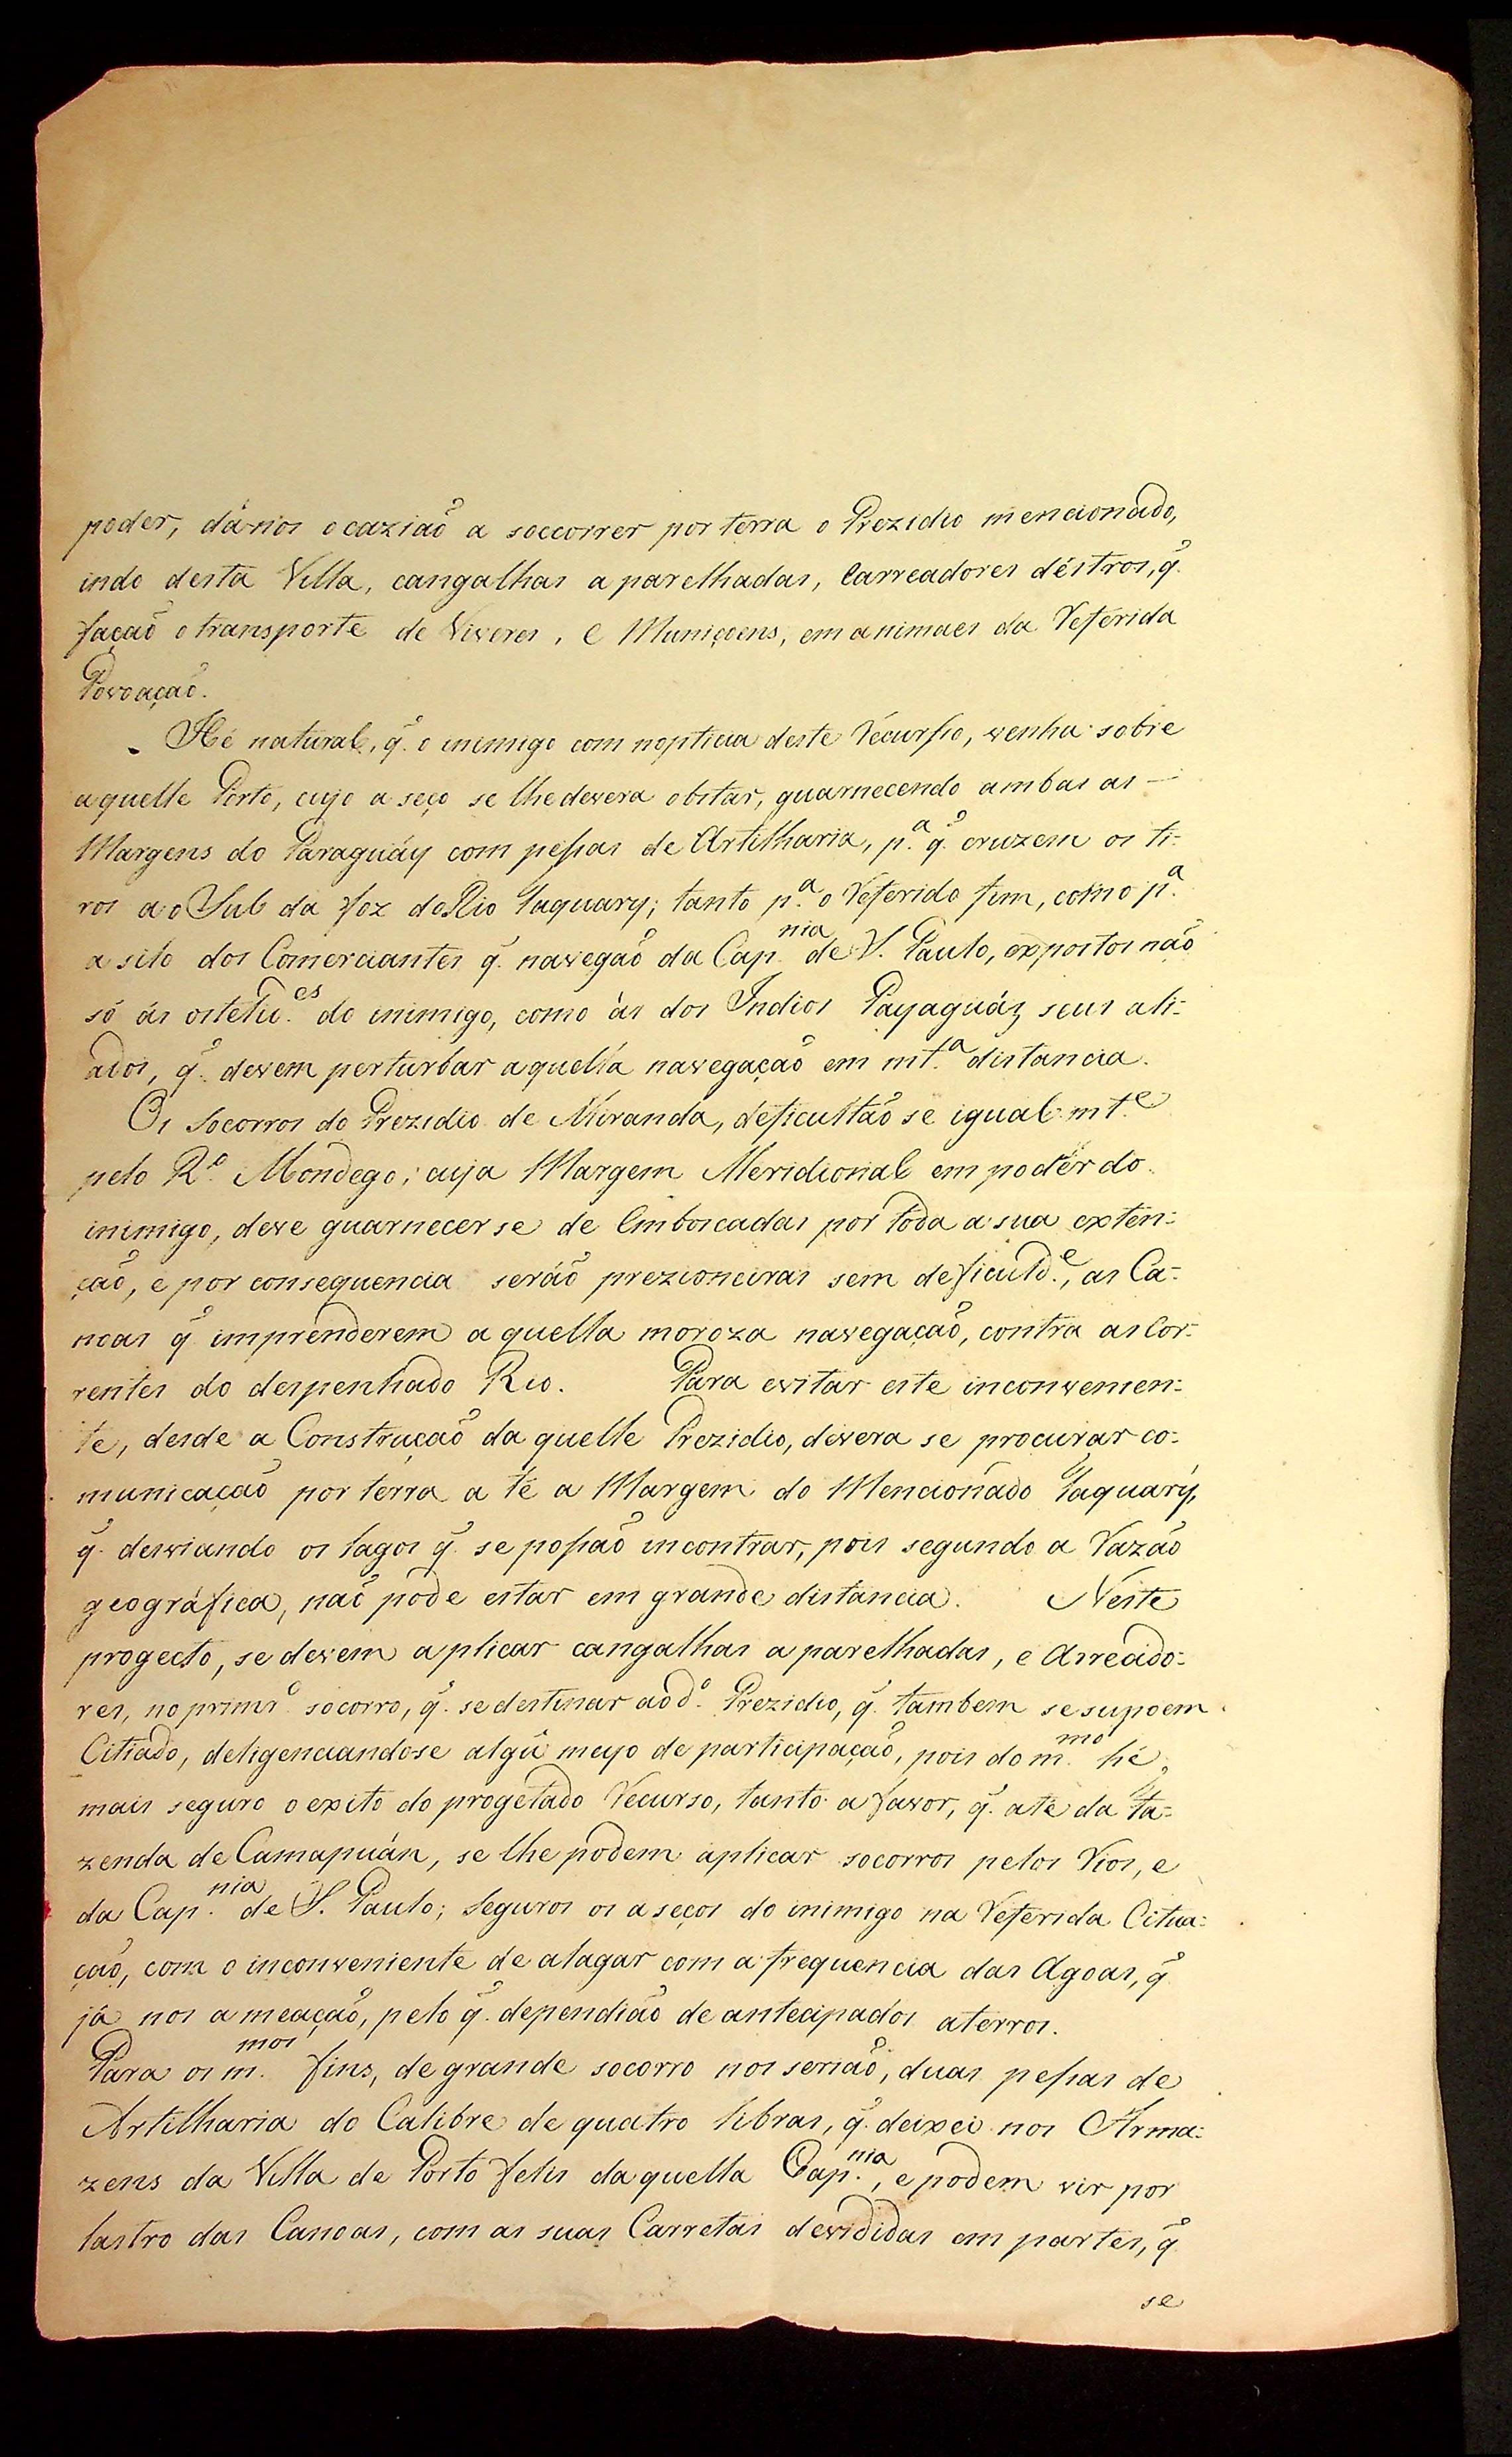 poder, dá-nos ocaziaõ a soccorrer por terra o Prezidio mencionado,
indo desta Villa, cangalhas aparelhadas, Carreadores déstros, q̃.
façaõ o transporte de Viveres, e Muniçoens, em animaes da Referida
Povoaçaõ.
Hé natural, q̃. o inimigo com nopticia deste Recurso, venha sobre
aquelle Porto, cujo aseço se lhe devera obstar, guarnecendo ambas as —
Margens do Paraguáy com peſsas de Artilharia, p.ª q̃. cruzem os ti=
ros ao Sul da Foz do Rio Taquary; tanto p.ª o Referido fim, como p.ª
asilo dos Comerciantes q̃. navegaõ da Cap.nia de S. Paulo, expostos naõ
só ás ostelid.es do inimigo, como ás dos Indios Payaguáz seus ali=
ados, q̃. devem perturbar aquella navegaçaõ em mt.ª distancia.
Os Socorros do Prezidio de Miranda, deficultaõ se igual mt.e
pelo R.º Mondego; cuja Margem Meridional em poder do
inimigo, deve guarnecer se de Emboscadas por toda a sua exten=
çaõ, e por consequencia seráõ prezioneiras sem deficuld.e, as Ca=
noas q̃. imprenderem aquella moroza navegaçaõ, contra as Cor=
rentes do despenhado Rio. Para evitar este inconvenien=
te, desde a Construçaõ da quelle Prezidio, devera se procurar co=
municaçaõ por terra a té a Margem do Mencionado Taquarÿ,
q̃. desviando os lagos q̃. se poſsaõ incontrar, pois segundo a Razaõ
geográfica, naõ pode estar em grande distancia. Neste
progecto, se devem aplicar cangalhas aparelhadas, e Arreado=
res, no primr.º socorro, q̃. se destinar ao d.º Prezidio, q̃. tambem se supoem
Citiado, deligenciandose algũ meyo de participaçaõ, pois do m.mo hé
mais seguro o exito do progetado Recurso, tanto a favor, q̃. até da Fa=
zenda de Camapuán, se lhe podem aplicar socorros pelos Rios, e
da Cap.nia de S. Paulo; Seguros os aseços do inimigo na Referida Citua=
çaõ, com o inconveniente de alagar com a frequencia das Agoas, q̃.
já nos ameaçaõ, pelo q̃. dependiaõ de antecipados aterros.
Para os m.mos fins, de grande socorro nos seriaõ, duas peſsas de
Artilharia do Calibre de quatro libras, q̃. deixei nos Arma=
zens da Villa de Porto Felis daquella Cap.nia, e podem vir por
lastro das Canoas, com as suas Carretas devididas em partes, q̃.
se